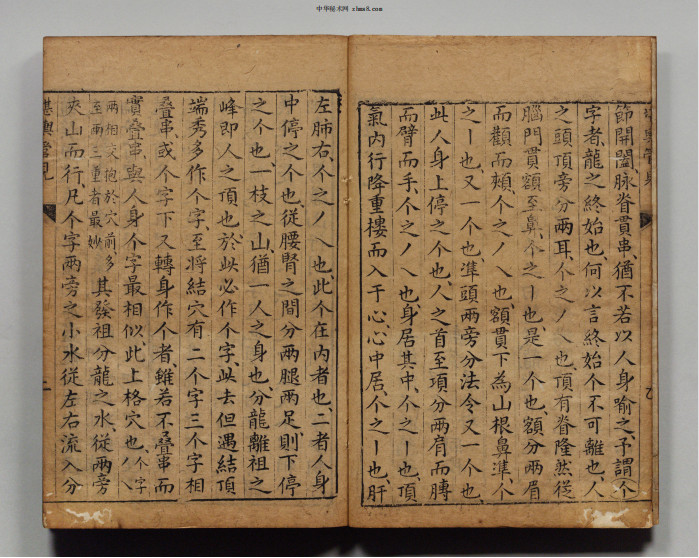 中华秘术网 zhms8.com
節開闔、脉脊貫串、猶不若以人身喻之、予謂个
字者、龍之終始也、何以言終始个不可離也、人
之頭頂旁分兩耳、个之ノ乀也、頂有脊隆然從
腦門貫額至鼻、个之丨也、是一个也、額分兩眉
而顴而頰、个之ノ乀也、額貫下為山根鼻準、个
之丨也、又一个也、準頭兩旁分法令又一个也、
此人身上停之个也、人之首至項分兩肩而膊
而臂而手、个之ノ乀也、身居其中、个之丨也、項
氣內行降重樓而入于心、心中居、个之丨也、肝
左肺右、个之ノ乀也、此个在內者也、二者人身
中停之个也、從腰腎之間分兩腿兩足、則下停
之个也、一枝之山、猶一人之身也、分龍離祖之
峰即人之頂也、於此必作个字、此去但遇結頂
端秀多作个字、至將結穴有二个字三个字相
叠串、或个字下又轉身作个者、雖若不叠串而
實叠串、與人身个字最相似、此上格穴也、个字ノ乀
兩相交抱於穴前、多至兩三重者最妙其發祖分龍之水、從兩旁
夾山而行、凡个字兩旁之小水從左右流入分
堪輿管見 二